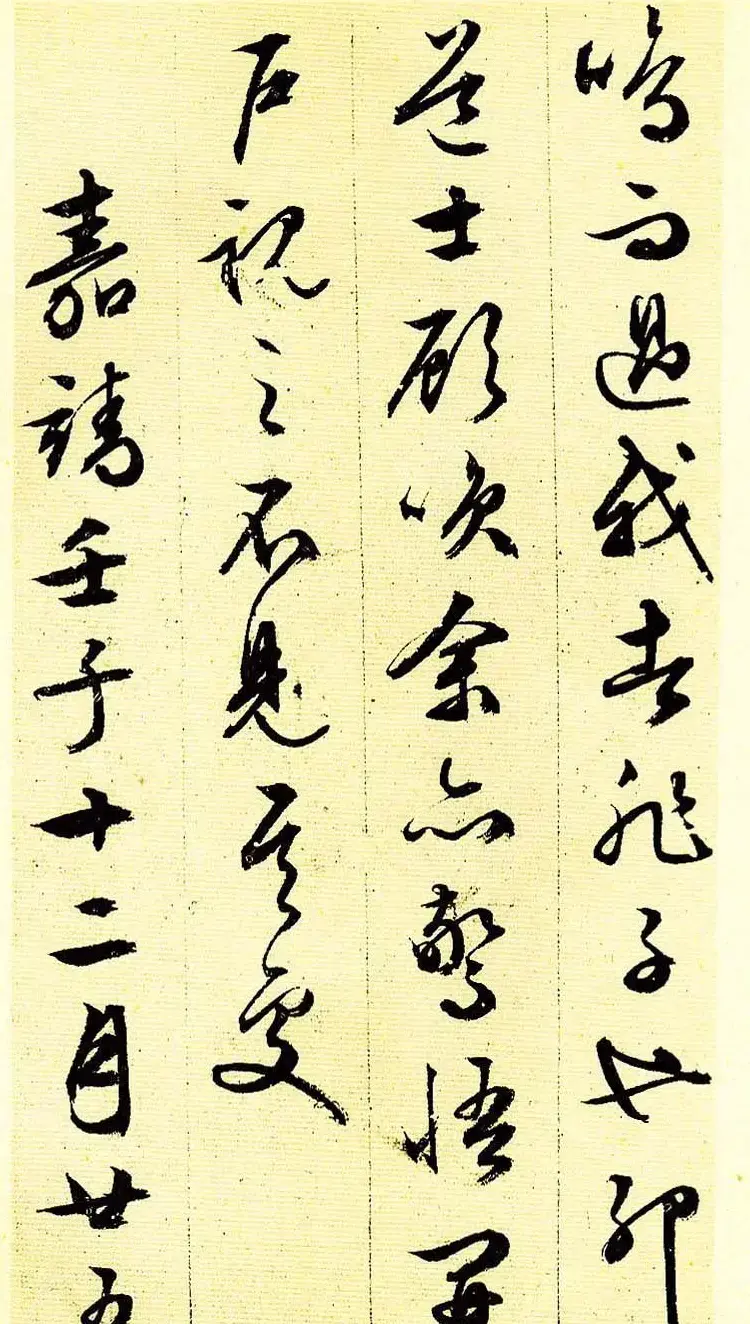 鳴而過我者非子也耶
道士顧咲余亦驚悟開
戶視之不見其處
嘉靖壬子十二月廿五